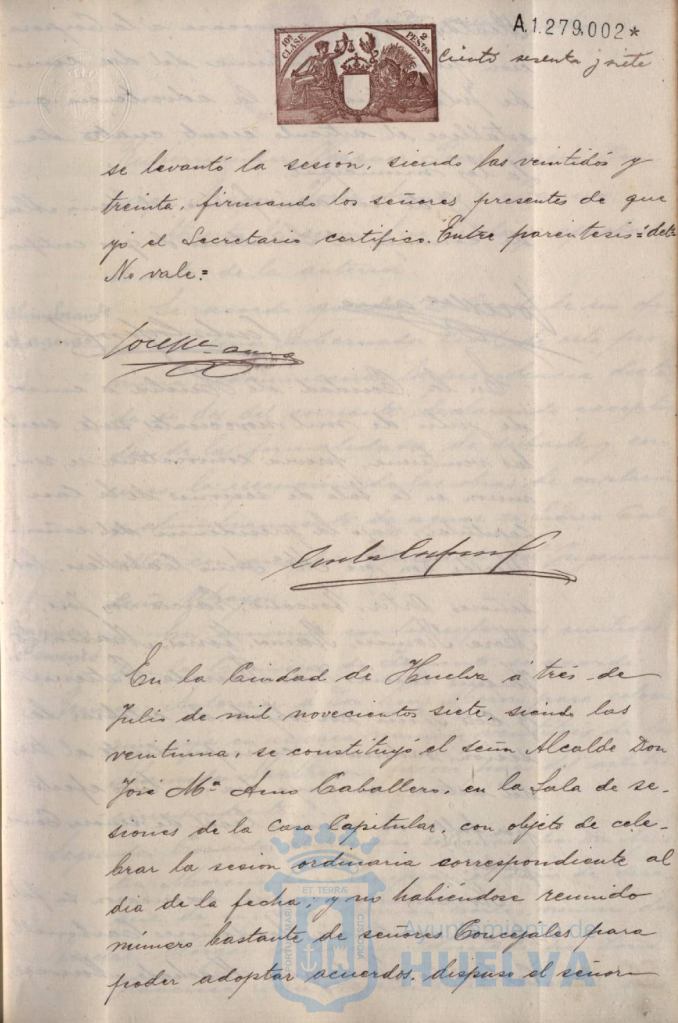 A.1.279.002*
10ª CLASE
2 PESETAS
ciento sesenta y siete
se levantó la sesión, siendo las veintidós y
treinta, firmando los señores presentes de que
yo el Secretario certifico. Entre parentesis =
No vale =
En la Ciudad de Huelva á tres de
Julio de mil novecientos siete, siendo las
veintiuna, se constituyó el señor Alcalde Don
José Mª Caballero, en la Sala de se-
siones de la Casa Capitular, con objeto de cele-
brar la sesion ordinaria correspondiente al
dia de la fecha; y no habiéndose reunido
número bastante de señores Concejales para
poder adoptar acuerdos, dispuso el señor
ET TERRÆ
Ayuntamiento de
HUELVA